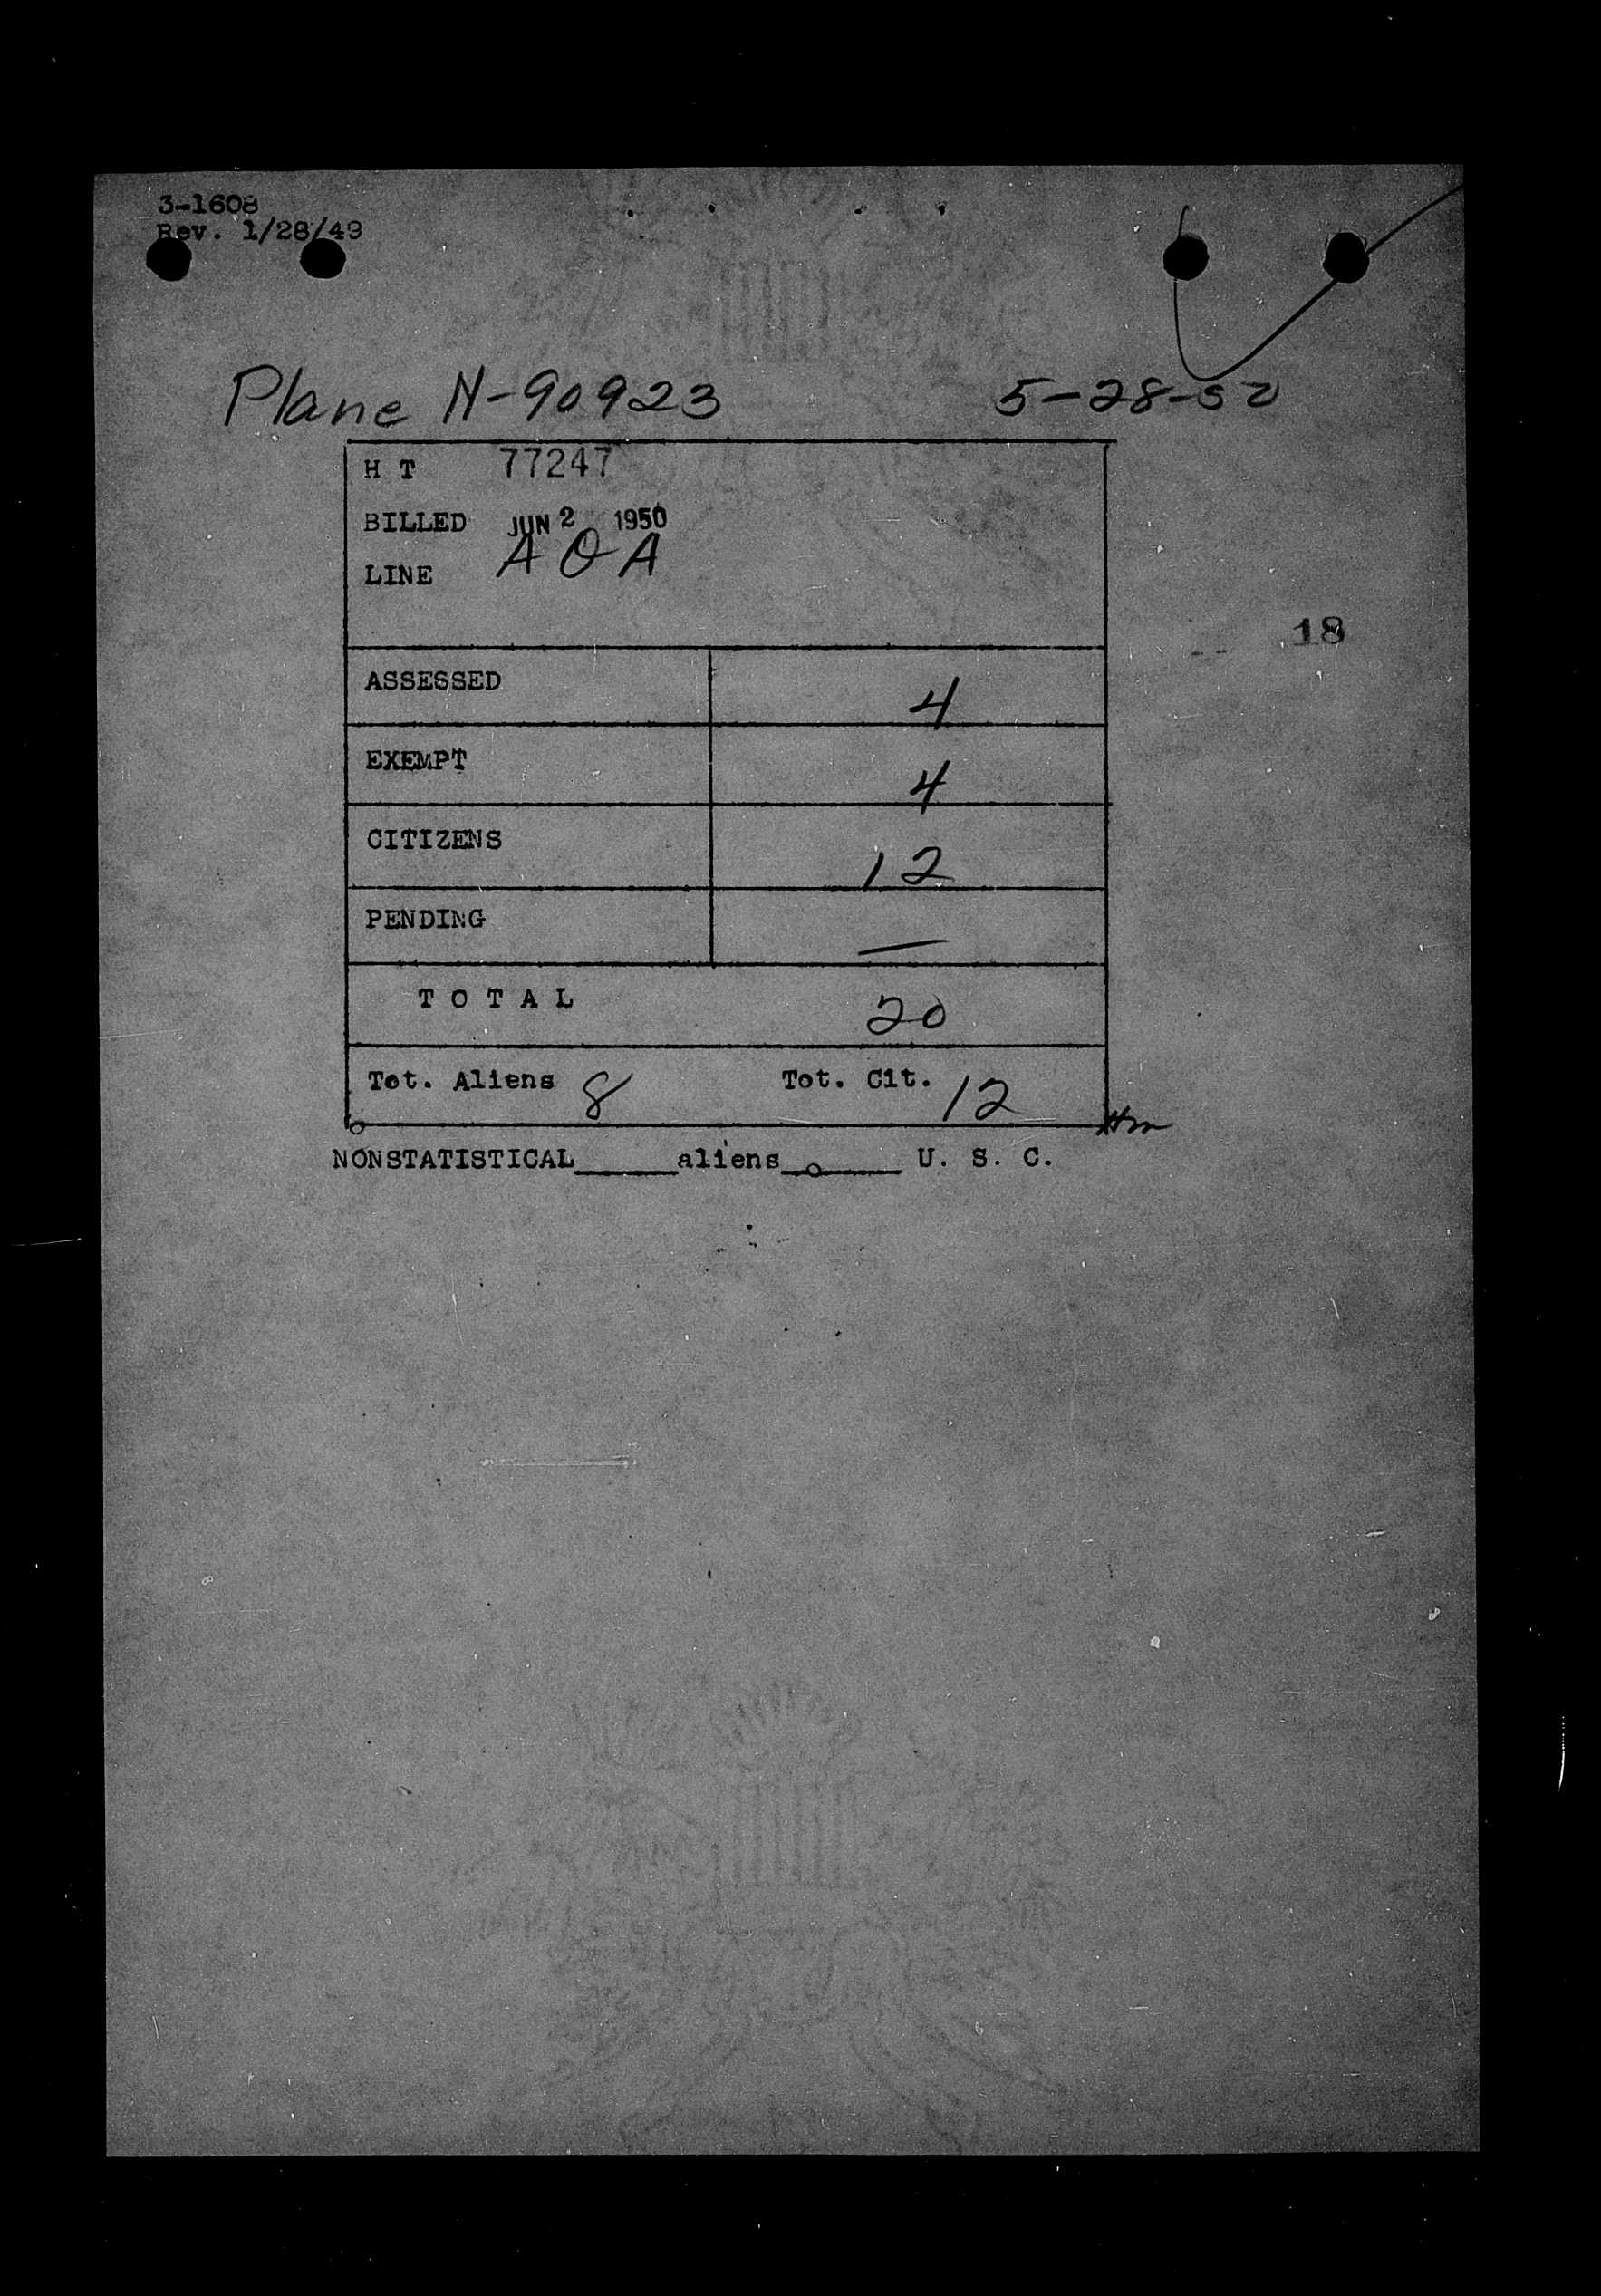 3-1608
Rev. 1/28/49
Plane N-90923 5-28-50
H T 77247
BILLED JUN 2 1950
LINE A O A
18
ASSESSED 4
EXEMPT 4
CITIZENS 12
PENDING —
T O T A L 20
Tot. Aliens 8 Tot. Cit. 12
NONSTATISTICAL______aliens__o____ U. S. C.